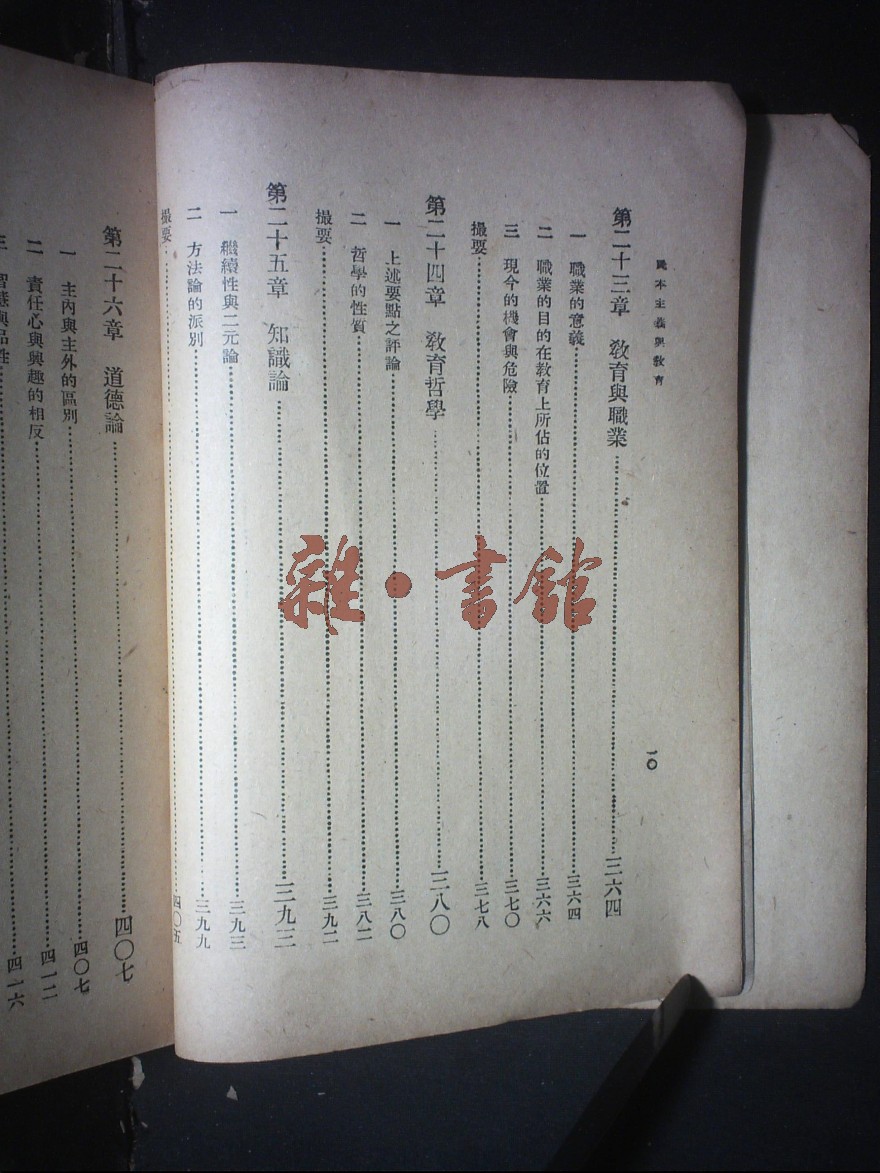 民本主義與教育
一〇
第二十三章　教育與職業……三六四
一　職業的意義……三六四
二　職業的目的在教育上所佔的位置……三六六
三　現今的機會與危險……三七〇
撮要……三七八
第二十四章　教育哲學……三八〇
一　上述要點之評論……三八〇
二　哲學的性質……三八二
撮要……三九二
第二十五章　知識論……三九三
一　繼續性與二元論……三九三
二　方法論的派別……三九九
撮要……四〇五
第二十六章　道德論……四〇七
一　主內與主外的區別……四〇七
二　責任心與興趣的相反……四一二
三　智慧與品性……四一六
雜·書館